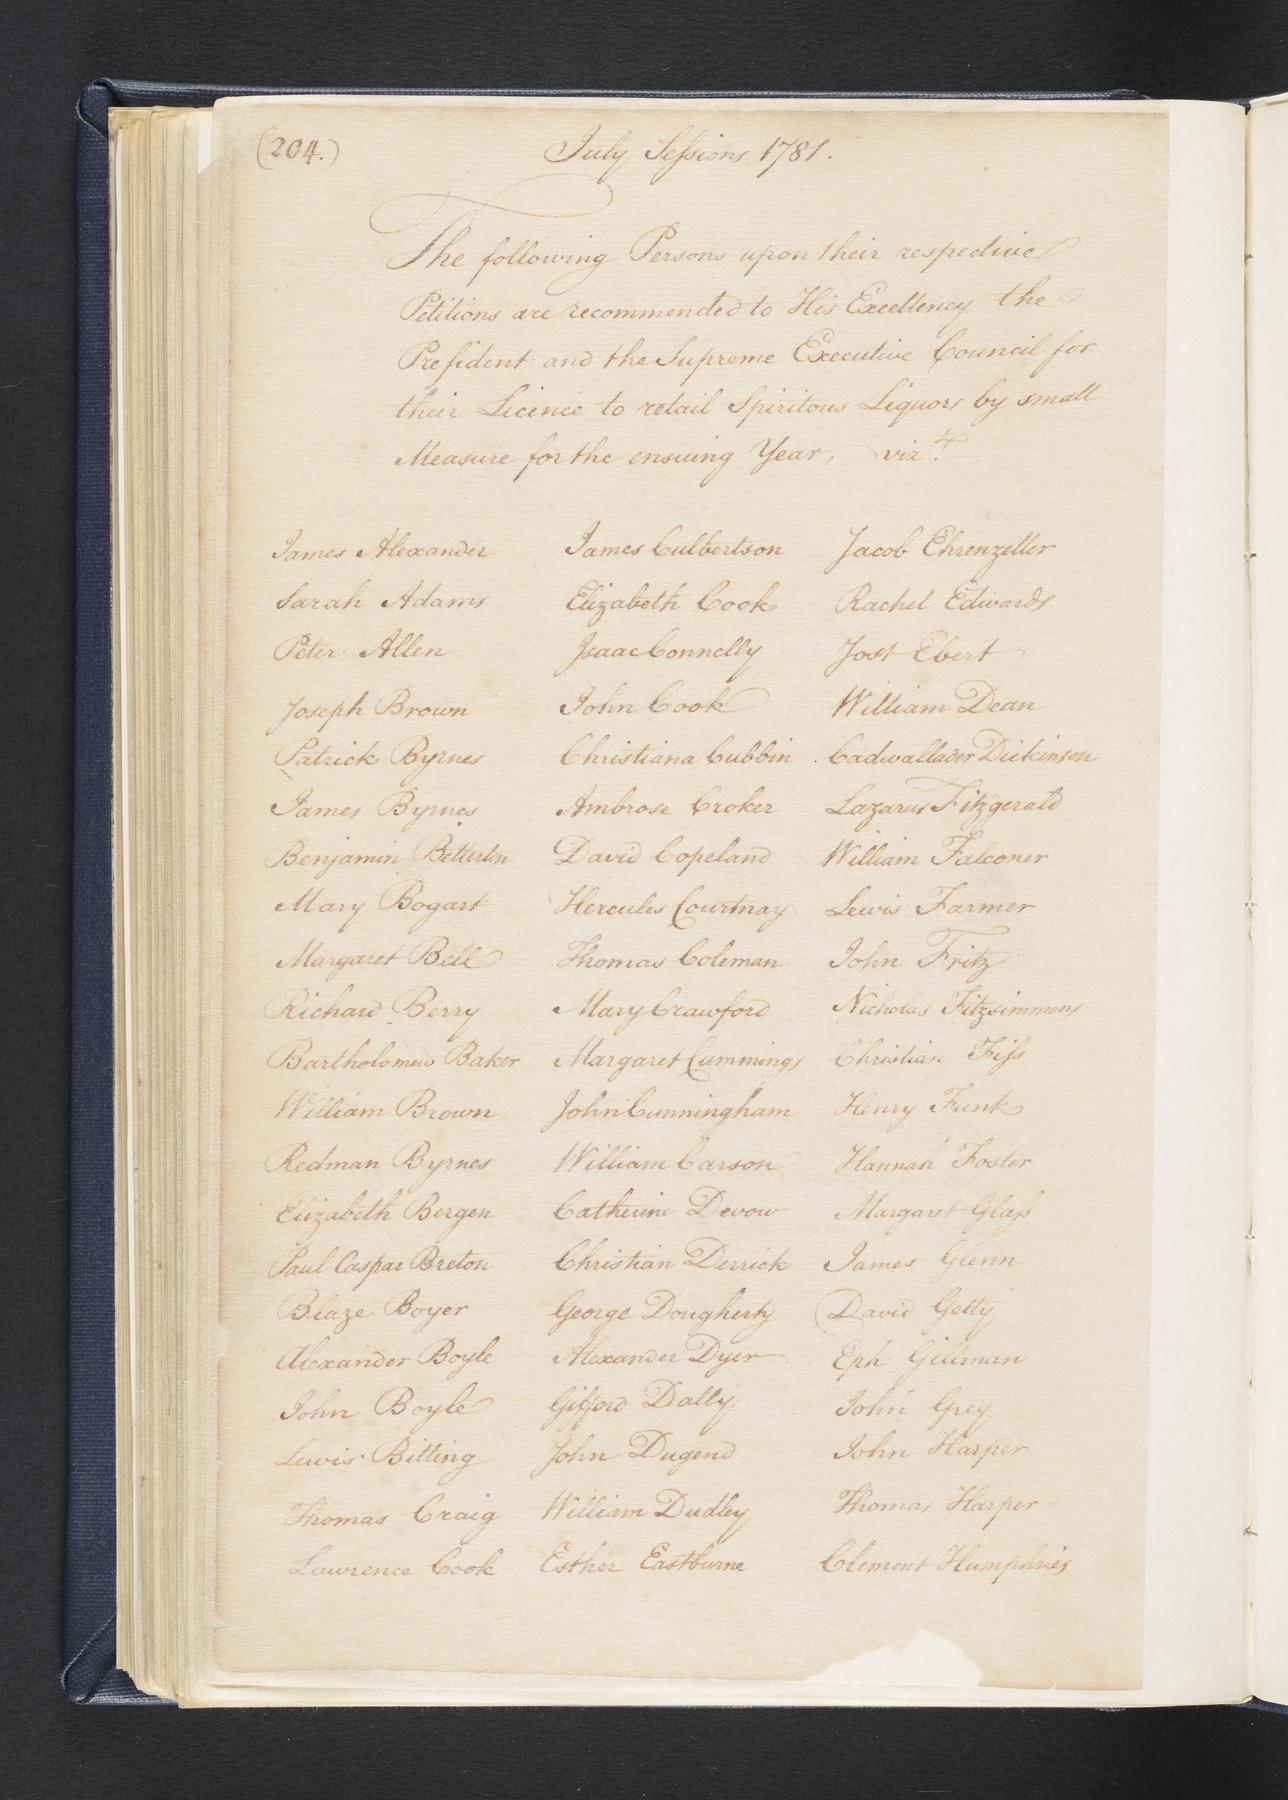 (204.)
July Sessions 1781.
The following Persons upon their respective
Petitions are recommended to His Excellency the
President and the Supreme Executive Council for
their Licence to retail Spiritous Liquors by small
Measure for the ensuing Year, viz.t
James Alexander
Sarah Adams
Peter Allen
Joseph Brown
Patrick Byrnes
James Byrnes
Benjamin Betterton
Mary Bogart
Margaret Bell
Richard Berry
Bartholomew Baker
William Brown
Redman Byrnes
Elizabeth Bergen
Paul Caspar Breton
Blaze Boyer
Alexander Boyle
John Boyle
Lewis Bitting
Thomas Craig
Lawrence Cook
James Culbertson
Elizabeth Cook
Isaac Connelly
John Cook
Christiana Cubbin
Ambrose Croker
David Copeland
Hercules Courtnay
Thomas Coleman
Mary Crawford
Margaret Cummings
John Cunningham
William Carson
Catherine Devow
Christian Derrick
George Dougherty
Alexander Dyer
Gifford Dally
John Dugend
William Dudley
Esther Eastburne
Jacob Ehrenzeller
Rachel Edwards
Jost Ebert
William Dean
Cadwallader Dickinson
Lazarus Fitzgerald
William Falconer
Lewis Farmer
John Fritz
Nicholas Fitzsimmons
Christian Fiss
Henry Funk
Hannah Foster
Margaret Glass
James Glenn
David Getty
Eph Gillman
John Grey
John Harper
Thomas Harper
Clement Humphries